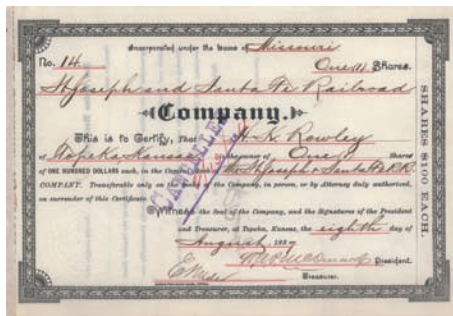 Incorporated under the laws of Missouri
No. 14 One (1) Shares.
St Joseph and Santa Fe Railroad
Company.
This is to Certify, That H. K. Rowley
of Topeka, Kansas is the owner of One Shares
of ONE HUNDRED DOLLARS each, in the Capital Stock of the St Joseph & Santa Fe R.R.
COMPANY. Transferable only on the books of the Company, in person, or by Attorney duly authorized,
on surrender of this Certificate.
Witness the Seal of the Company, and the Signatures of the President
and Treasurer, at Topeka, Kansas, the eighth day of
August 1887
President.
Treasurer.
SHARES $100 EACH.
CANCELLED